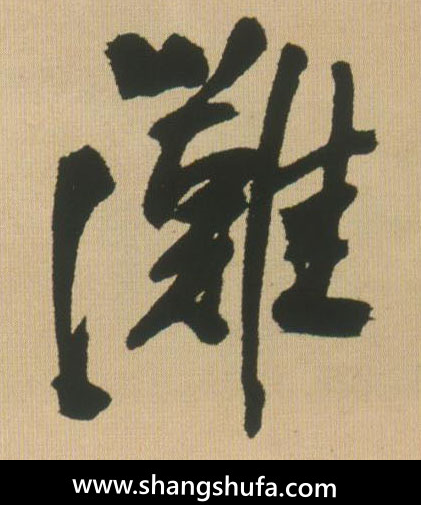 灘
www.shangshufa.com